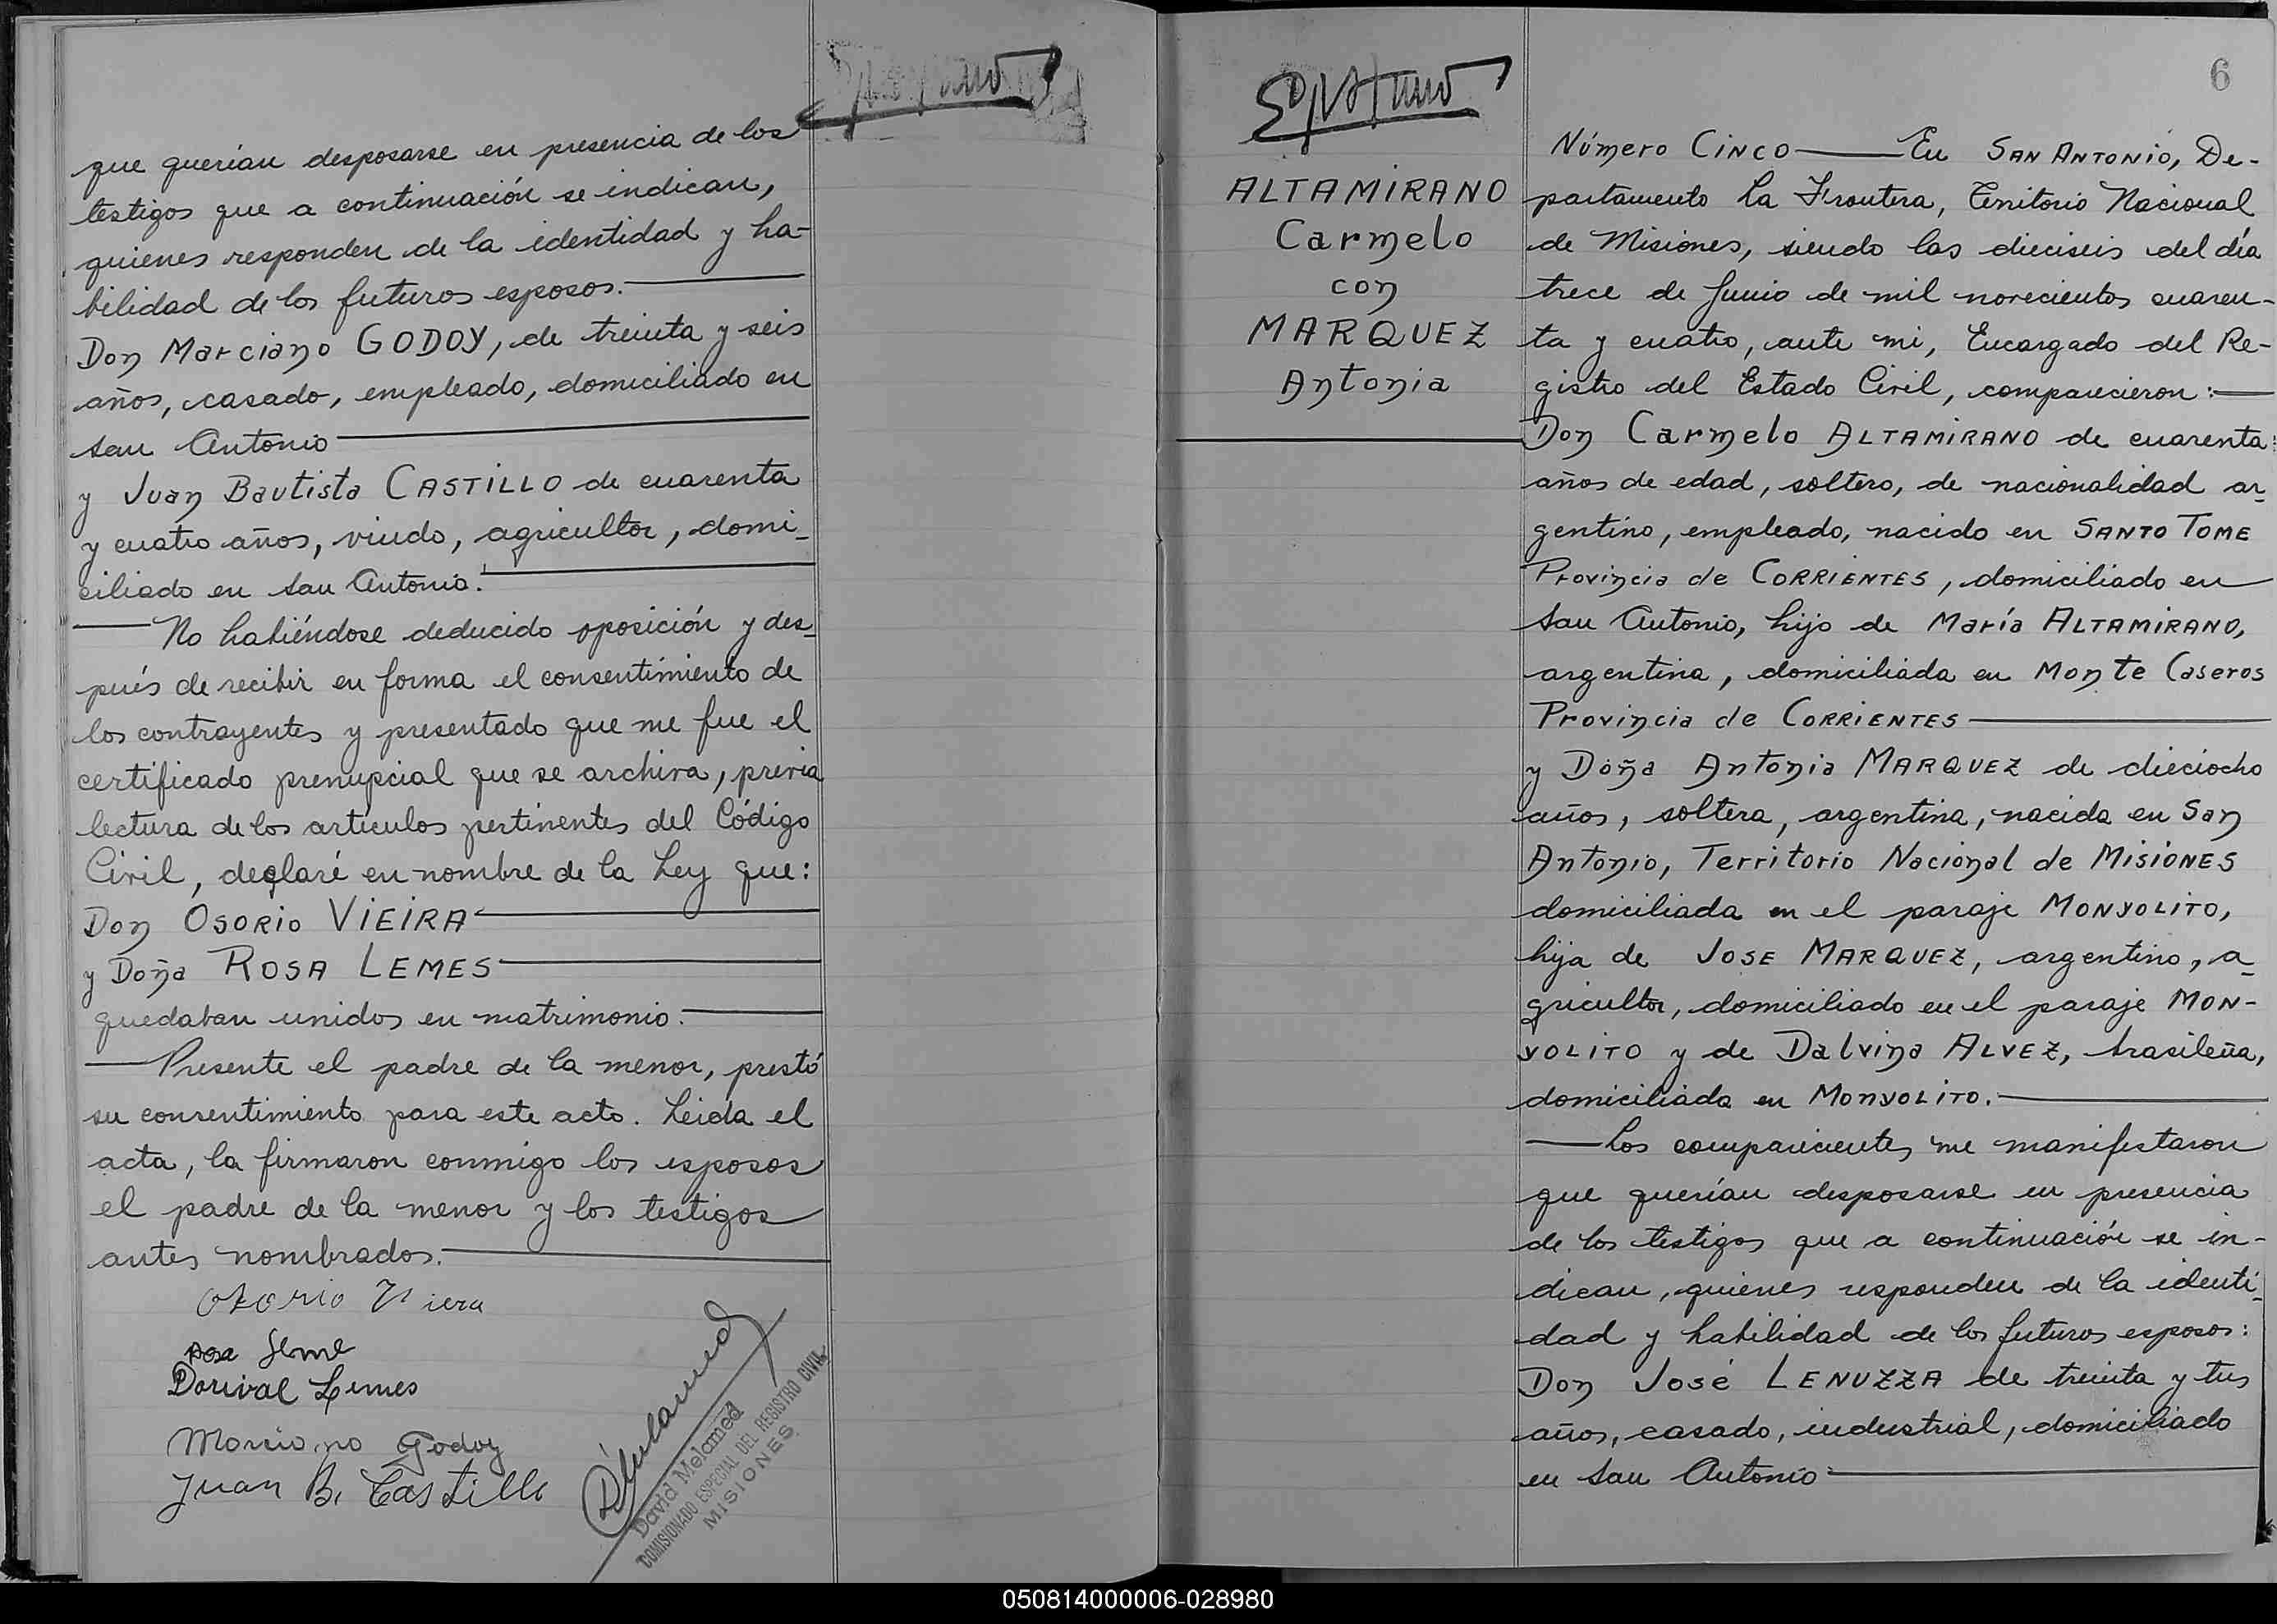 que querían desposarse en presencia de los
testigos que a continuación se indican,
quienes responden de la identidad y ha-
bilidad de los futuros esposos.
Don Marciano GODOY, de treinta y seis
años, casado, empleado, domiciliado en
san Antonio
y Juan Bautista CASTILLO de cuarenta
y cuatro años, viudo, agricultor, domi-
ciliado en san Antonio.
No habiéndose deducido oposición y des-
pués de recibir en forma el consentimiento de
los contrayentes y presentado que me fue el
certificado prenupcial que se archiva, previa
lectura de los artículos pertinentes del Código
Civil, declaré en nombre de la Ley que:
Don OSORIO VIEIRA
y Doña ROSA LEMES
quedaban unidos en matrimonio.
Presente el padre de la menor, prestó
su consentimiento para este acto. Leida el
acta, la firmaron conmigo los esposos
el padre de la menor y los testigos
antes nombrados.
Ozorio Viera
Rosa Leme
Dorival Lemes
Marciano Godoy
Juan B. Castillo
David Melamed
COMISIONADO ESPECIAL DEL REGISTRO CIVIL
MISIONES
6
ALTAMIRANO
Carmelo
con
MARQUEZ
Antonia
Número CINCO En SAN ANTONIO, De-
partamento La Frontera, Territorio Nacional
de Misiones, siendo las dieciseis del día
trece de Junio de mil novecientos cuaren-
ta y cuatro, ante mi, Encargado del Re-
gistro del Estado Civil, comparecieron:
Don Carmelo ALTAMIRANO de cuarenta
años de edad, soltero, de nacionalidad ar-
gentino, empleado, nacido en SANTO TOME
Provincia de CORRIENTES, domiciliado en
san Antonio, hijo de María ALTAMIRANO,
argentina, domiciliada en Monte Caseros
Provincia de CORRIENTES
y Doña Antonia MARQUEZ de dieciocho
años, soltera, argentina, nacida en San
Antonio, Territorio Nacional de MISIONES
domiciliada en el paraje MONYOLITO,
hija de JOSE MARQUEZ, argentino, a-
gricultor, domiciliado en el paraje MON-
YOLITO y de Dalvina ALVEZ, brasileña,
domiciliada en MONYOLITO.
Los comparecientes me manifestaron
que querían desposarse en presencia
de los testigos que a continuación se in-
dican, quienes responden de la identi-
dad y habilidad de los futuros esposos:
Don José LENUZZA de treinta y tres
años, casado, industrial, domiciliado
en san Antonio
050814000006-028980